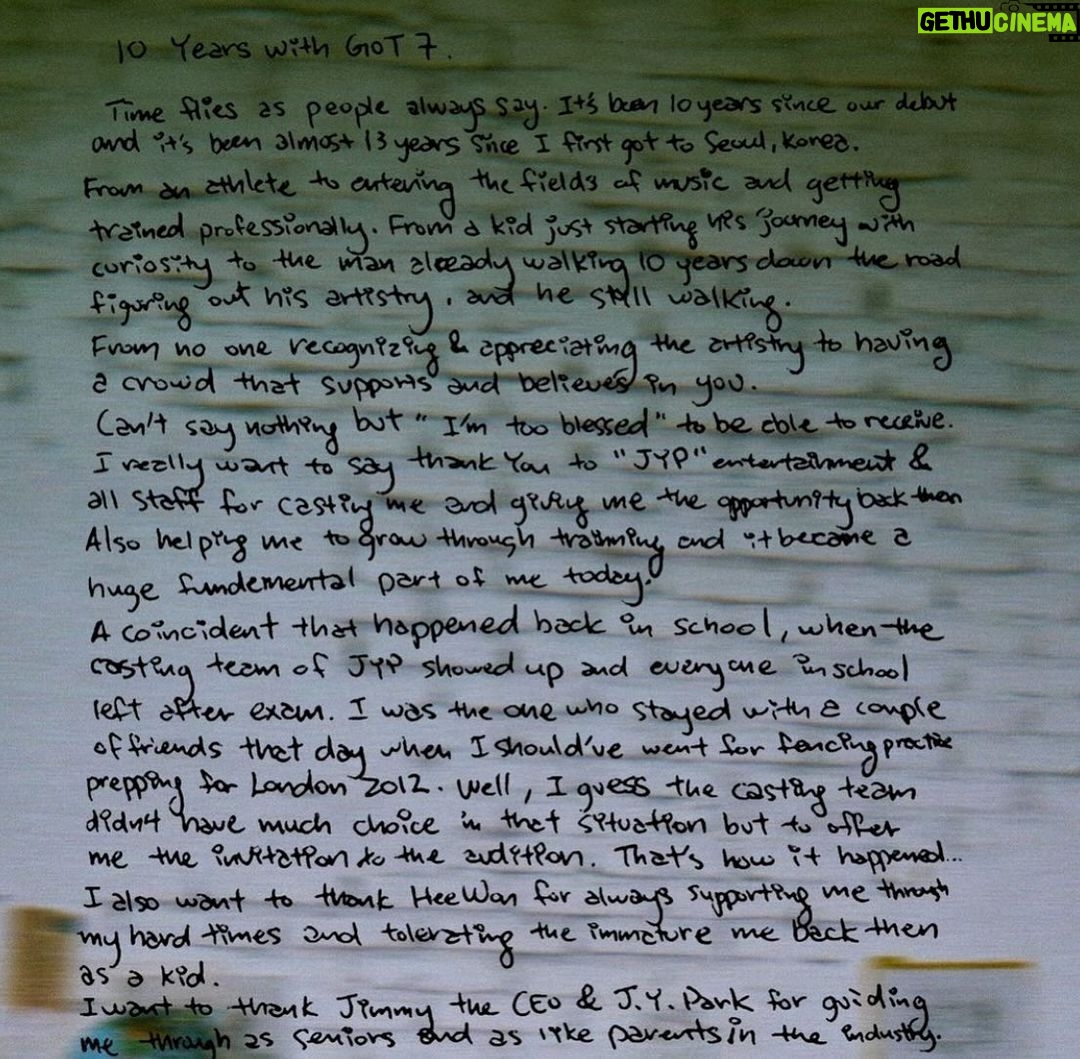 GETHUCINEMA
10 Years with GOT 7.
Time flies as people always say. It's been 10 years since our debut
and it's been almost 13 years since I first got to Seoul, Korea.
From an athlete to entering the fields of music and getting
trained professionally. From a kid just starting his journey with
curiosity to the man already walking 10 years down the road
figuring out his artistry, and he still walking.
From no one recognizing & appreciating the artistry to having
a crowd that supports and believes in you.
Can't say nothing but "I'm too blessed" to be able to receive.
I really want to say thank You to "JYP" entertainment &
all staff for casting me and giving me the opportunity back then
Also helping me to grow through training and it became a
huge fundemental part of me today.
A coincident that happened back in school, when the
casting team of JYP showed up and everyone in school
left after exam. I was the one who stayed with a couple
of friends that day when I should've went for fencing practice
prepping for London 2012. Well, I guess the casting team
didn't have much choice in that situation but to offer
me the invitation to the audition. That's how it happened...
I also want to thank HeeWon for always supporting me through
my hard times and tolerating the immature me back then
as a kid.
I want to thank Jimmy the CEO & J.Y. Park for guiding
me through as seniors and as like parents in the industry.